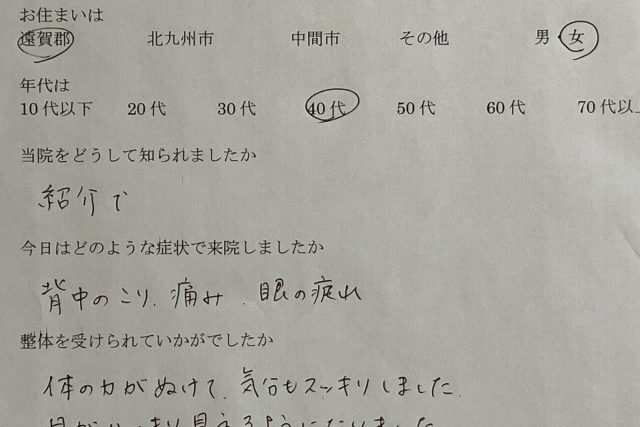 お住まいは
遠賀郡 北九州市 中間市 その他 男・女
年代は
10代以下 20代 30代 40代 50代 60代 70代以上
当院をどうして知られましたか
紹介で
今日はどのような症状で来院しましたか
背中のこり、痛み、眼の疲れ
整体を受けられていかがでしたか
体の力がぬけて、気分もスッキリしました。
目がハッキリ見えるようになりました